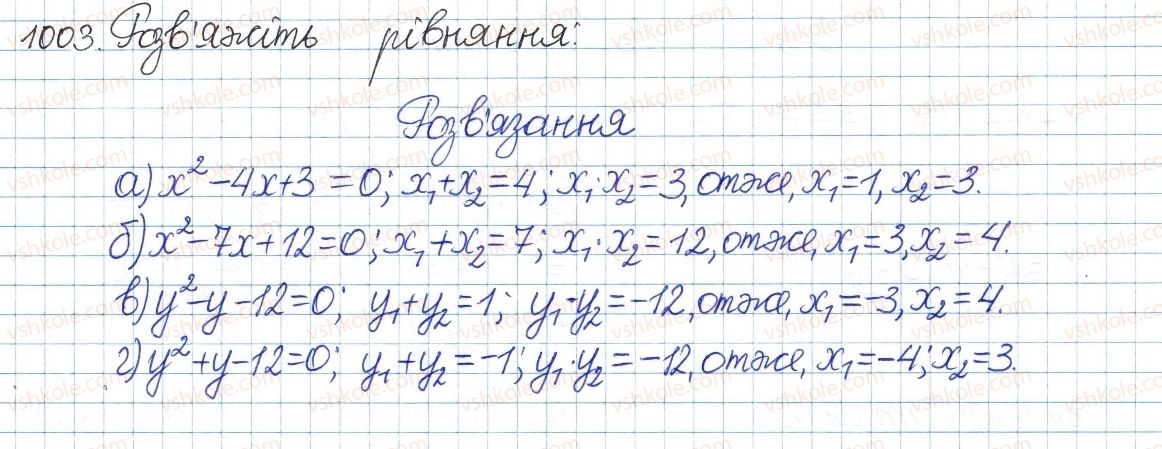 1003. Розв'яжіть рівняння:
Розв'язання
а) x² - 4x + 3 = 0; x₁ + x₂ = 4; x₁ · x₂ = 3, отже, x₁ = 1, x₂ = 3.
б) x² - 7x + 12 = 0; x₁ + x₂ = 7; x₁ · x₂ = 12, отже, x₁ = 3, x₂ = 4.
в) y² - y - 12 = 0; y₁ + y₂ = 1; y₁ · y₂ = -12, отже, x₁ = -3, x₂ = 4.
г) y² + y - 12 = 0; y₁ + y₂ = -1; y₁ · y₂ = -12, отже, x₁ = -4; x₂ = 3.